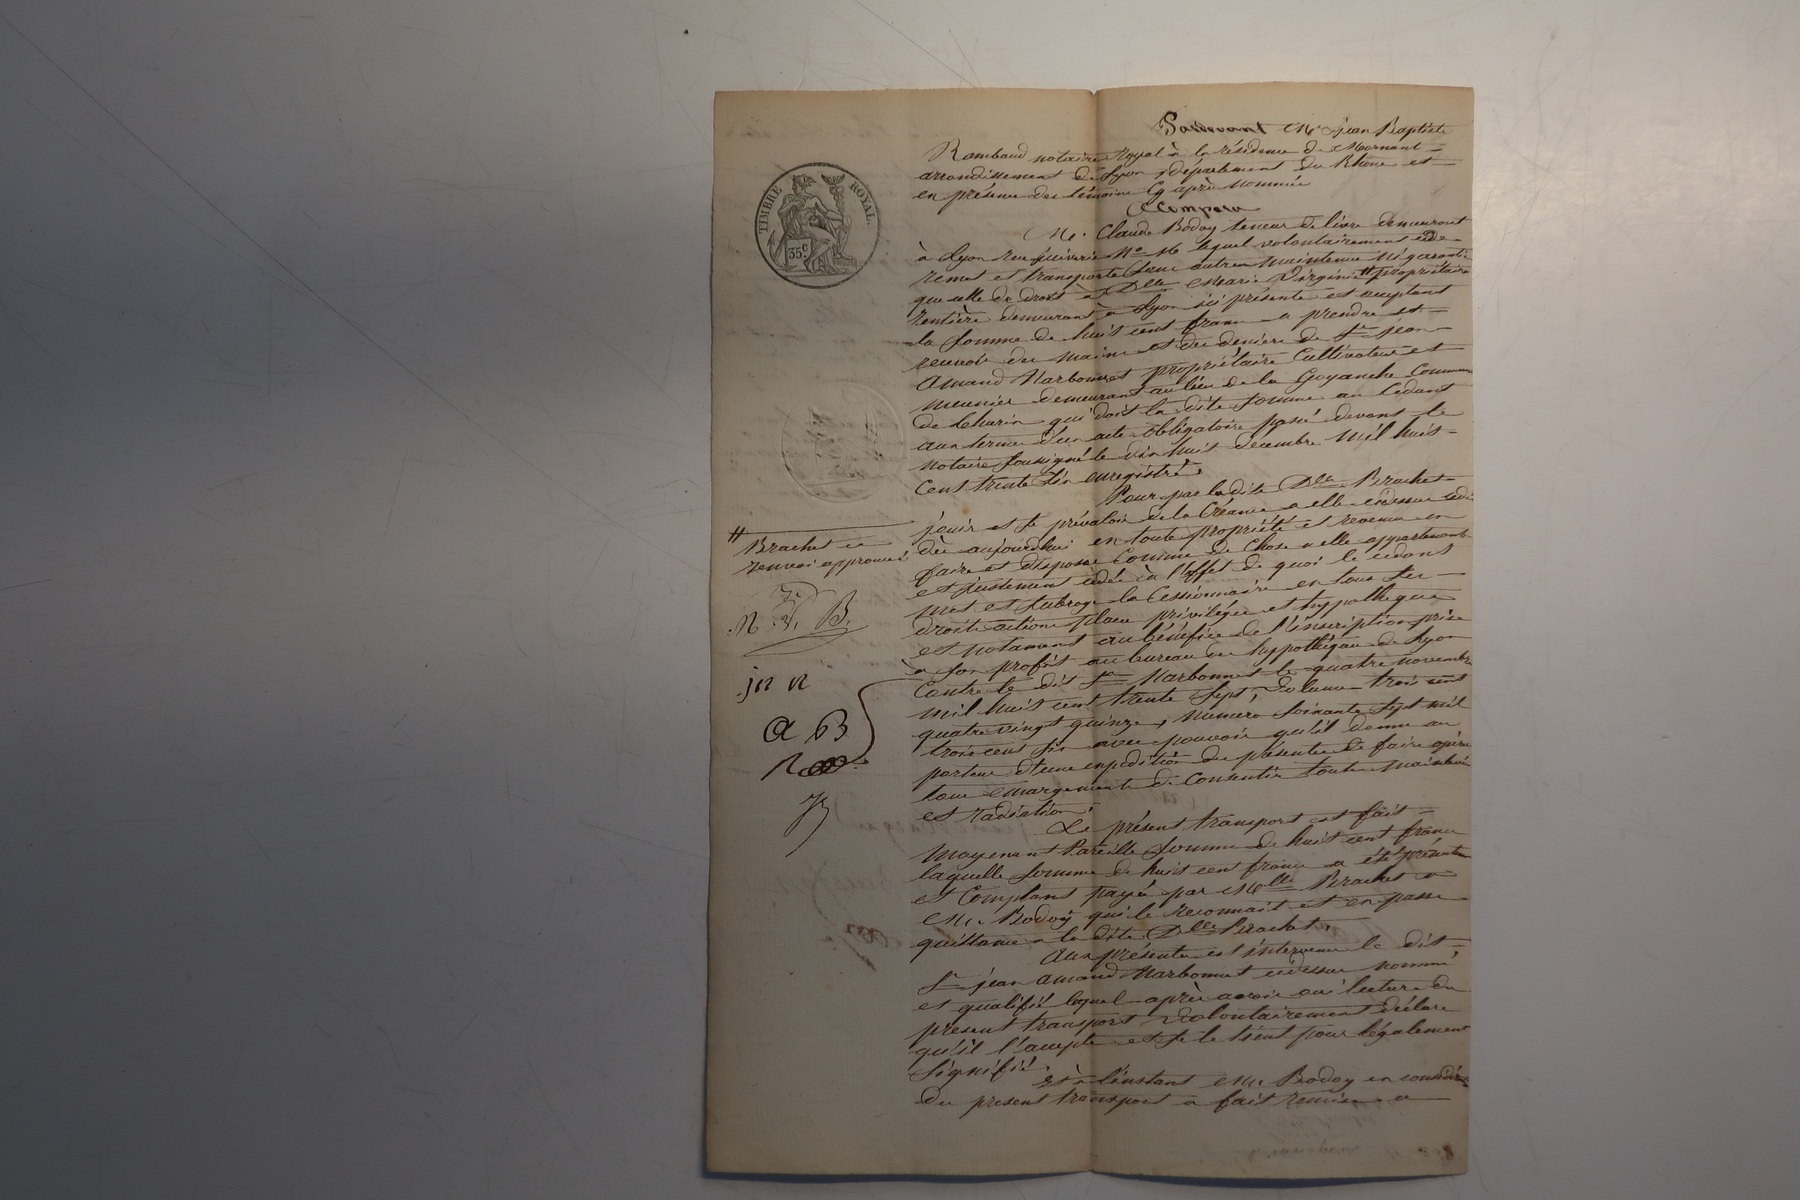 Pardevant Me Jean Baptiste
Rambaud notaire Royal à la résidence de Mornant
arrondissement de Lyon, département du Rhône et
en présence des témoins cy après nommés
Comparu
TIMBRE ROYAL
35 c
Mr. Claude Bodoy teneur de livre demeurant
à Lyon rue Juiverie No 16 lequel volontairement cède
remet et transporte sans autre maintenue ni garantie
que celle de droit à Dlle Marie Virginie # propriétaire
rentière demeurant à Lyon ici présente et acceptant
la somme de huit cent francs à prendre et
recevoir des mains et des deniers de Sr jean
Amand Narbonnet propriétaire Cultivateur et
meunier demeurant au lieu de la Goyanche Commune
de qui doit la dite somme au Cédant
aux termes d'un acte obligatoire passé devant le
notaire soussigné le dix huit décembre mil huit
cent trente six enregistré.
Pour par la dite Dlle Brachet
jouir et se prévaloir de la Créance a elle cidessus cédée
dès aujourdhui en toute propriété et revenu en
faire et disposer comme de chose a elle appartenant
et justement cédée à l'effet de quoi le cédant
met et subroge la Cessionnaire en tous ses
droits actions places privilèges et hyppothèques
et notament au bénéfice de l'inscription prise
à son profit au bureau des hyppothèques de Lyon
Contre le dit Sr Narbonnet le quatre novembre
mil huit cent trente sept, volume trois cent
quatre vingt quinze, numéro soixante sept mil
trois cent six avec pouvoir qu'il donne au
porteur d'une expédition des présentes de faire opérer
tous émargements de consentir toute mainlevée
et radiation.
# Brachet ce
renvoi approuvé
B.
jn n
a B
R
Le présent transport est fait
moyenant Pareille somme de huit cent francs
laquelle somme de huit cent francs a été présentement
et Comptant payée par Mlle Brachet a
Mr. Bodoy qui le reconnait et en passe
quittance a la dite Dlle Brachet.
Aux présentes est intervenu le dit
Sr jean Amand Narbonnet cidessus nommé
et qualifié lequel après avoir oui lecture du
présent transport volontairement déclare
qu'il l'accepte et se le tient pour légalement
signifié.
Et à l'instant Mr Bodoy en
du présent transport a fait remise a